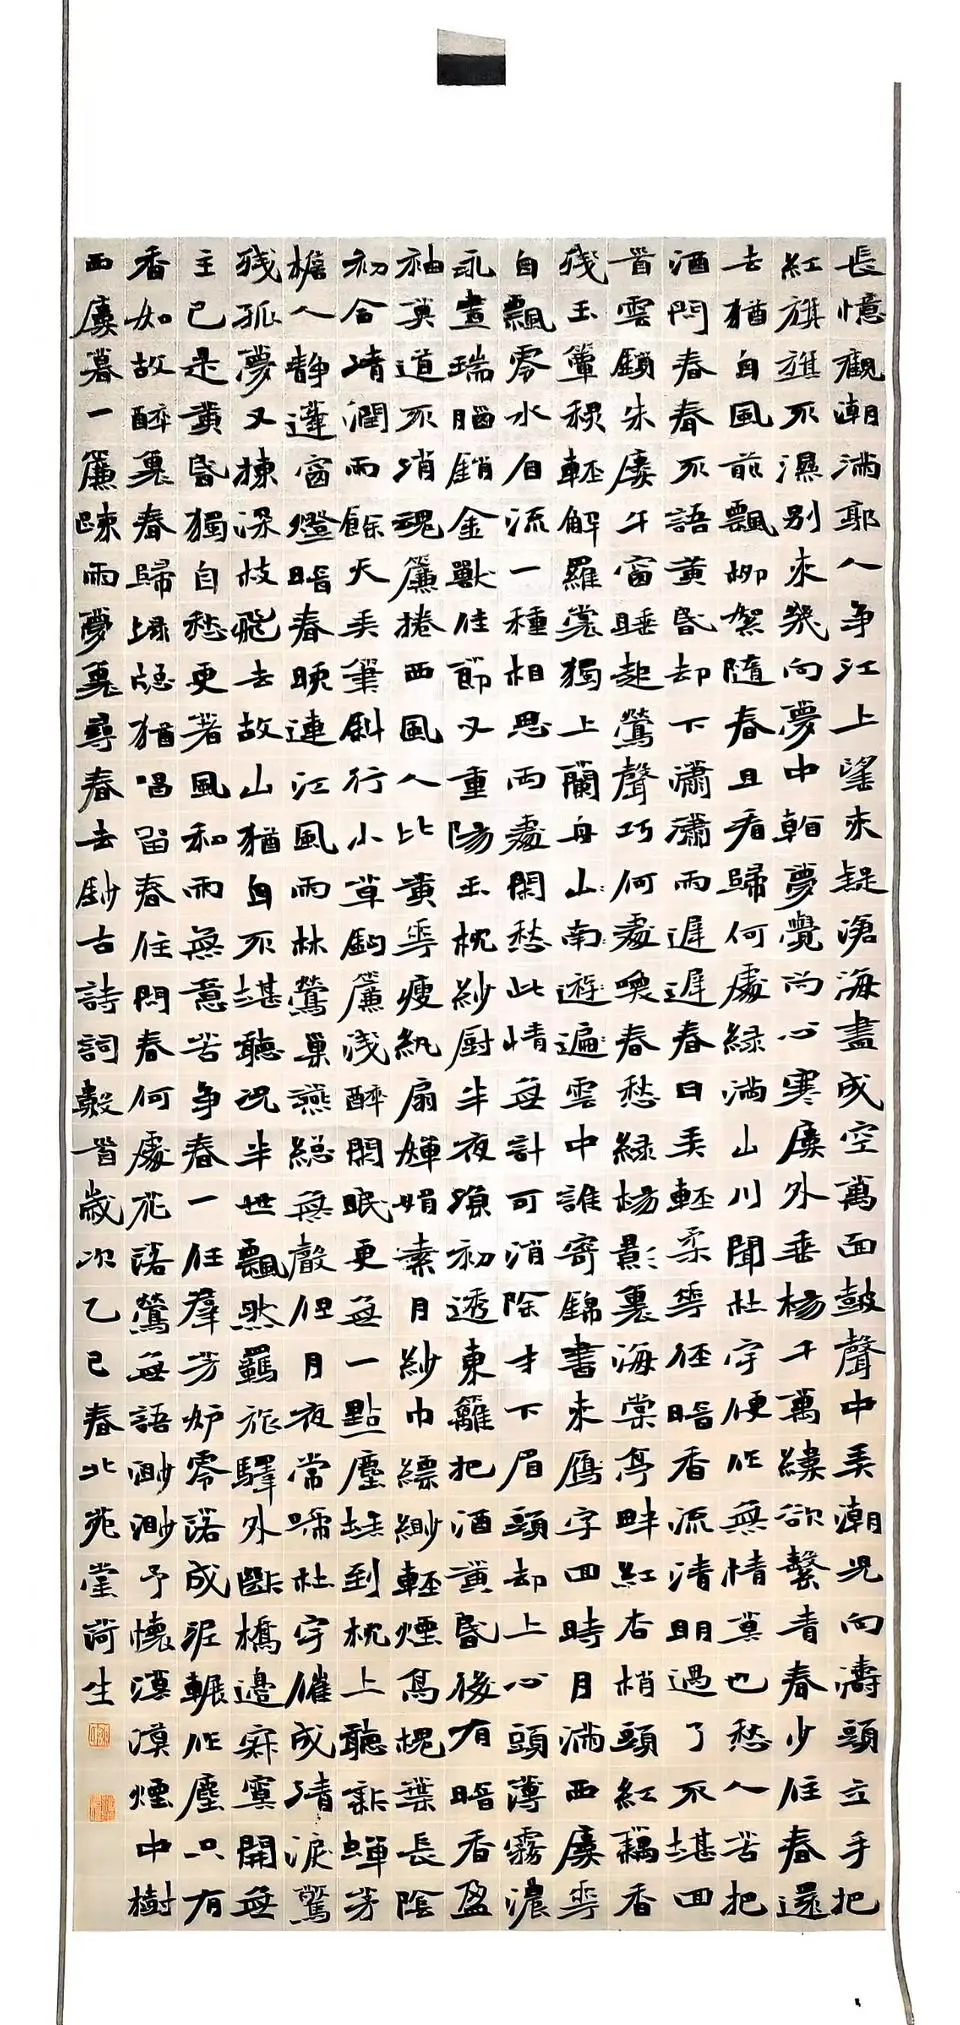 長憶觀潮滿郭人爭江上望來疑滄海盡成空萬面鼓聲中弄潮兒向濤頭立手把
紅旗旗不濕別來幾向夢中看夢覺尚心寒廔外垂楊千萬縷欲繫青春少住春還
去猶自風前飄柳絮隨春且看歸何處綠滿山川聞杜宇便作無情莫也愁人苦把
酒問春春不語黃昏却下瀟瀟雨遲遲春日弄輕柔華徑暗香流清明過了不堪回
首雲鎖朱廔午窗睡起鶯聲巧何處喚春愁綠楊影裏海棠亭畔紅杏梢頭紅藕香
殘玉簟秋輕解羅裳獨上蘭舟山南遊遍雲中誰寄錦書來雁字回時月滿西廔華
自飄零水自流一種相思兩處閑愁此情無計可消除才下眉頭却上心頭薄霧濃
永晝瑞腦銷金獸佳節又重陽玉枕紗厨半夜涼初透東籬把酒黃昏後有暗香盈
袖莫道不消魂簾捲西風人比黃華瘦紈扇嬋娟素月紗巾縹緲輕煙高槐葉長陰
初合清潤雨餘天弄筆斜行小草鈎簾淺醉閑眠更無一點塵埃到枕上聽新蟬茅
檐人靜蓬窗燈暗春晚連江風雨林鶯巢燕總無聲但月夜常啼杜宇催成清淚驚
殘孤夢又揀深枝飛去故山猶自不堪聽況半世飄然羈旅驛外斷橋邊寂寞開無
主已是黃昏獨自愁更著風和雨無意苦爭春一任群芳妒零落成泥輾作塵只有
香如故醉裏春歸綠窗猶唱留春住問春何處花落鶯無語渺渺予懷漠漠煙中樹
西廔暮一簾疎雨夢裏尋春去鈔古詩詞數首歲次乙巳春北苑堂荷生